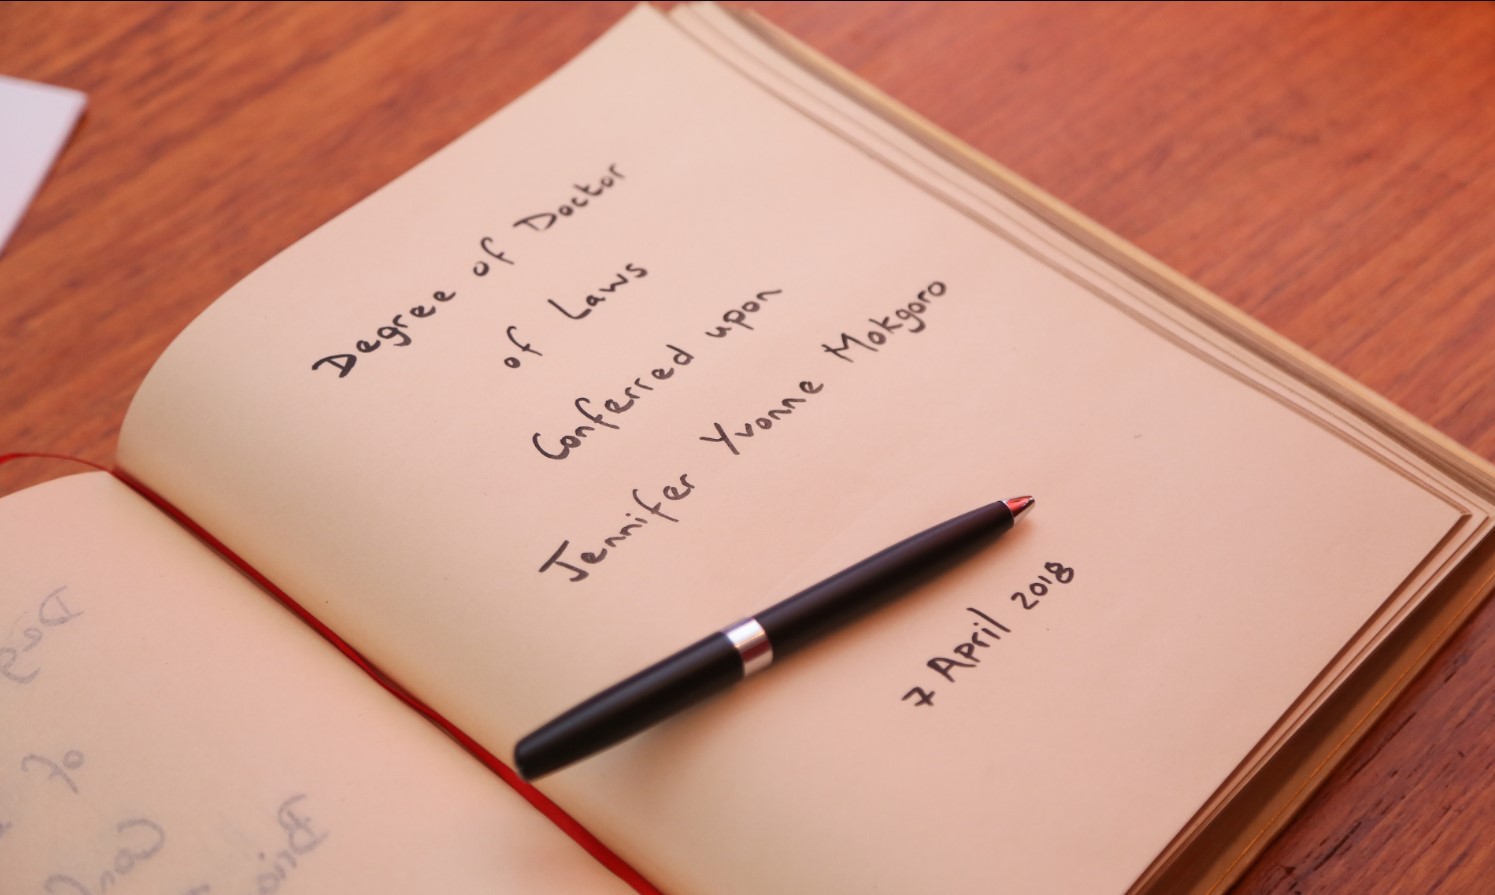 Degree of Doctor
of Laws
Conferred upon
Jennifer Yvonne Mokgoro
7 April 2018